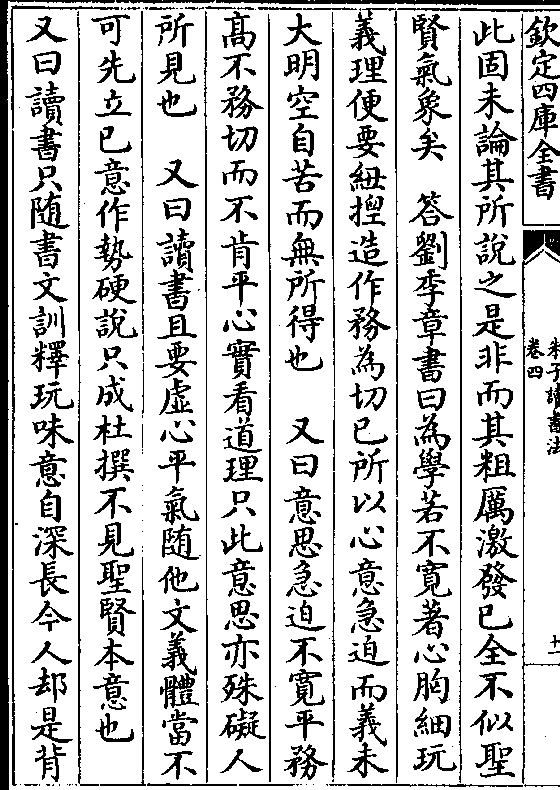 欽定四庫全書
朱子讀書法
卷四
十
此固未論其所說之是非而其粗厲激發已全不似聖
賢氣象矣　答劉季章書曰為學若不寛著心胸細玩
義理便要紐揑造作務為切已所以心意急迫而義未
大明空自苦而無所得也　又曰意思急迫不寛平務
髙不務切而不肯平心實看道理只此意思亦殊礙人
所見也　又曰讀書且要虛心平氣随他文義體當不
可先立已意作勢硬說只成杜撰不見聖賢本意也
又曰讀書只随書文訓釋玩味意自深長今人却是背